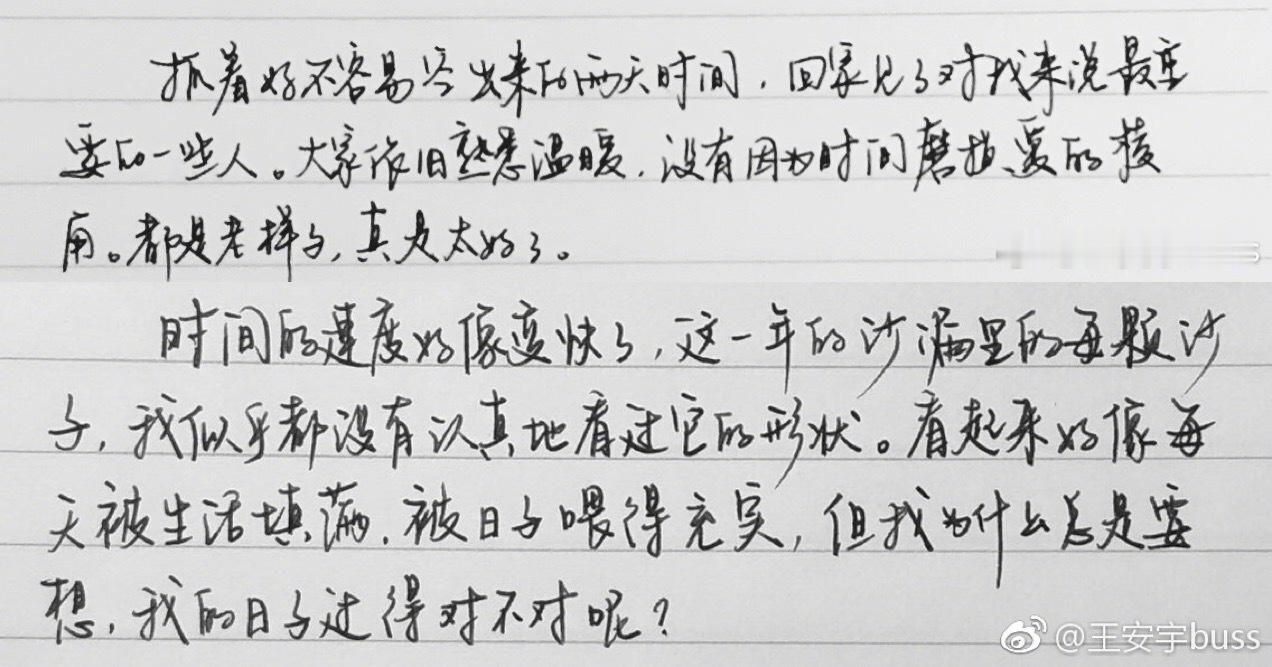 抓着好不容易空出来的两天时间，回家见了对我来说最重
要的一些人。大家依旧熟悉温暖，没有因为时间磨损爱的棱
角。都是老样子，真是太好了。
时间的速度好像变快了，这一年的沙漏里的每颗沙
子，我似乎都没有认真地看过它的形状。看起来好像每
天被生活填满，被日子喂得充实，但我为什么总是要
想，我的日子过得对不对呢？
@王安宇buss